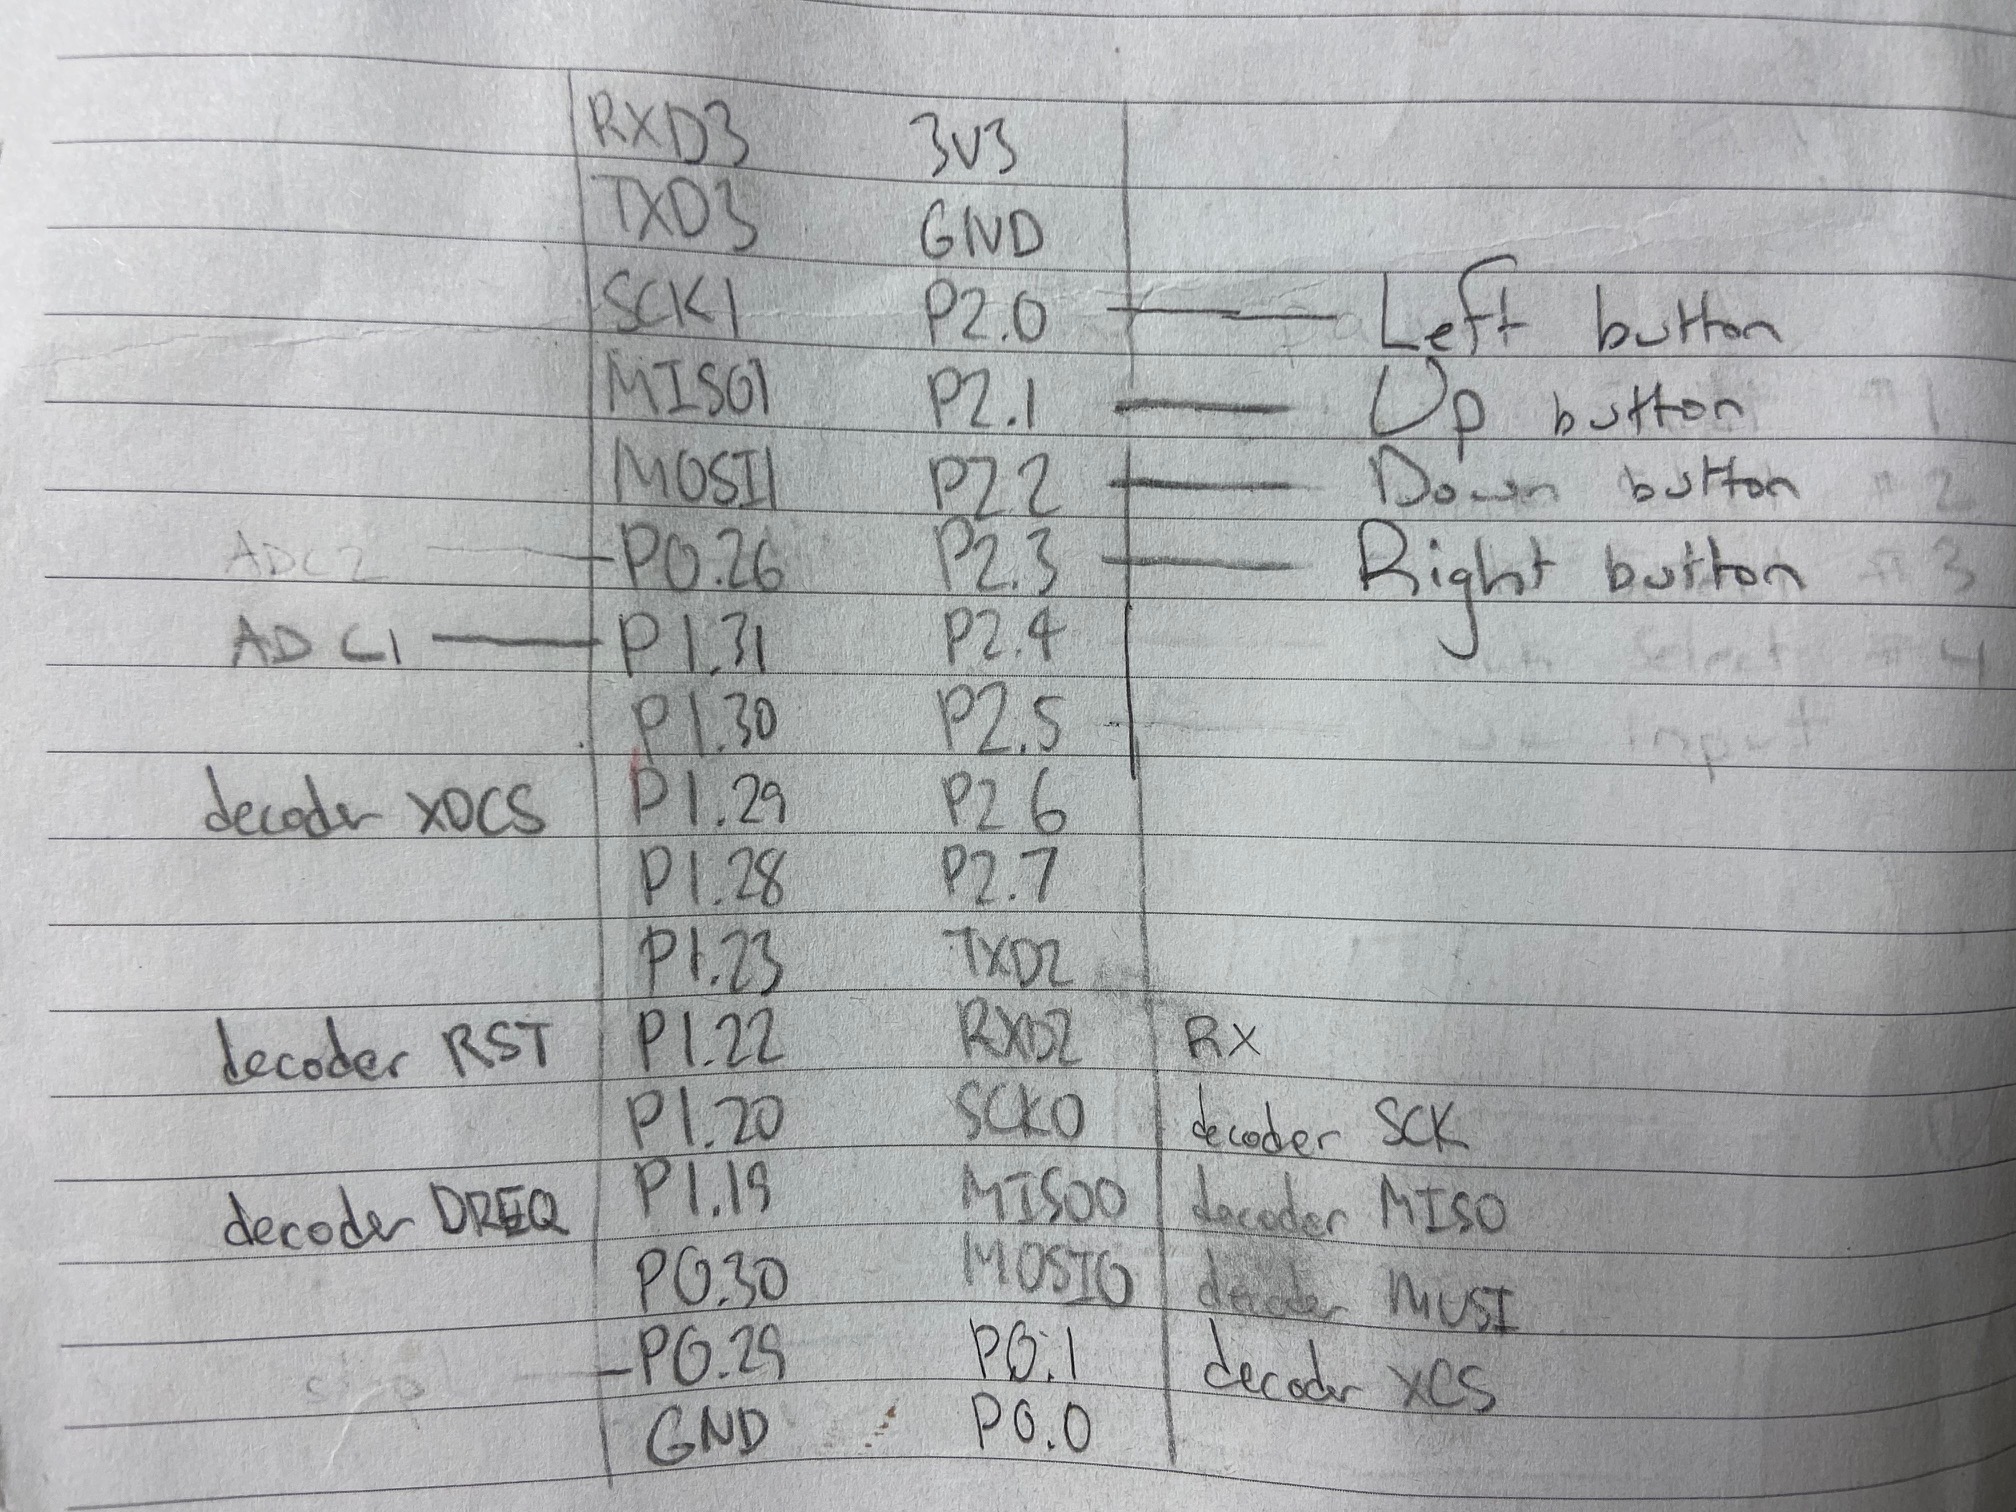 RXD3 3V3
TXD3 GND
SCK1 P2.0 Left button
MISO1 P2.1 Up button #1
MOSI1 P2.2 Down button #2
ADC2 P0.26 P2.3 Right button #3
ADC1 P1.31 P2.4 Select #4
P1.30 P2.5 input
decoder XDCS P1.29 P2 6
P1.28 P2.7
P1.23 TXD2
decoder RST P1.22 RXD2 RX
P1.20 SCK0 decoder SCK
decoder DREQ P1.19 MISO0 decoder MISO
P0.30 MOSI0 decoder MUSI
P0.29 P0.1 decoder XCS
GND P0.0